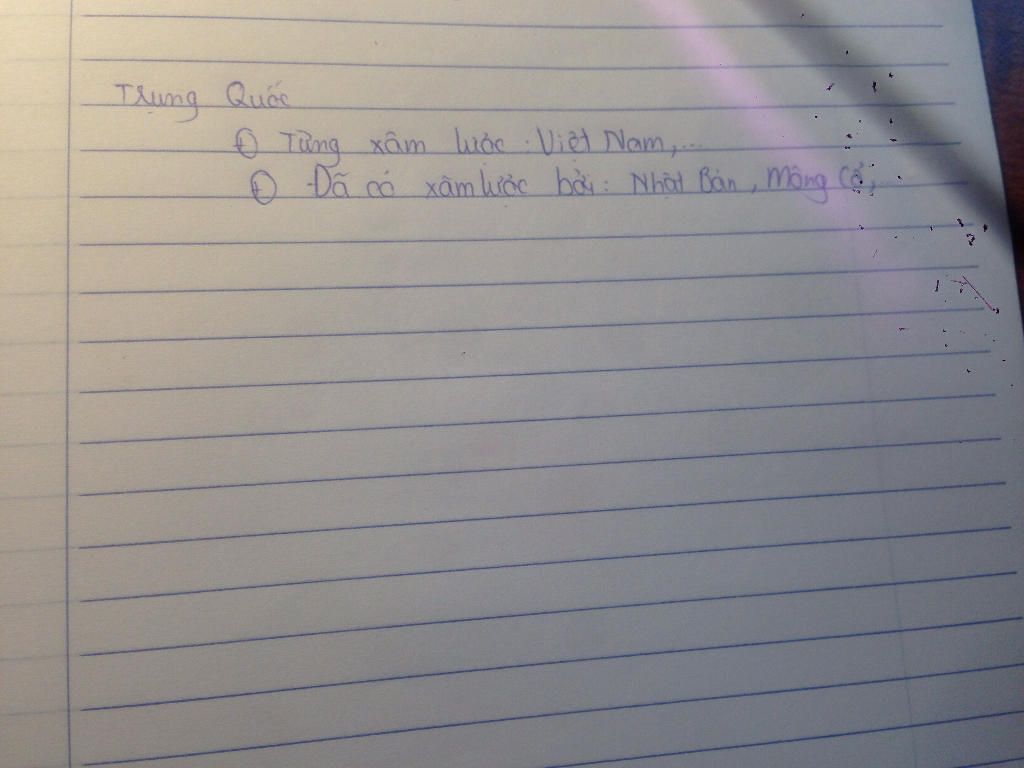 Trung Quốc
⊕ Từng xâm lược : Việt Nam, ...
⊕ Đã có xâm lược bởi : Nhật Bản , Mông Cổ, ...